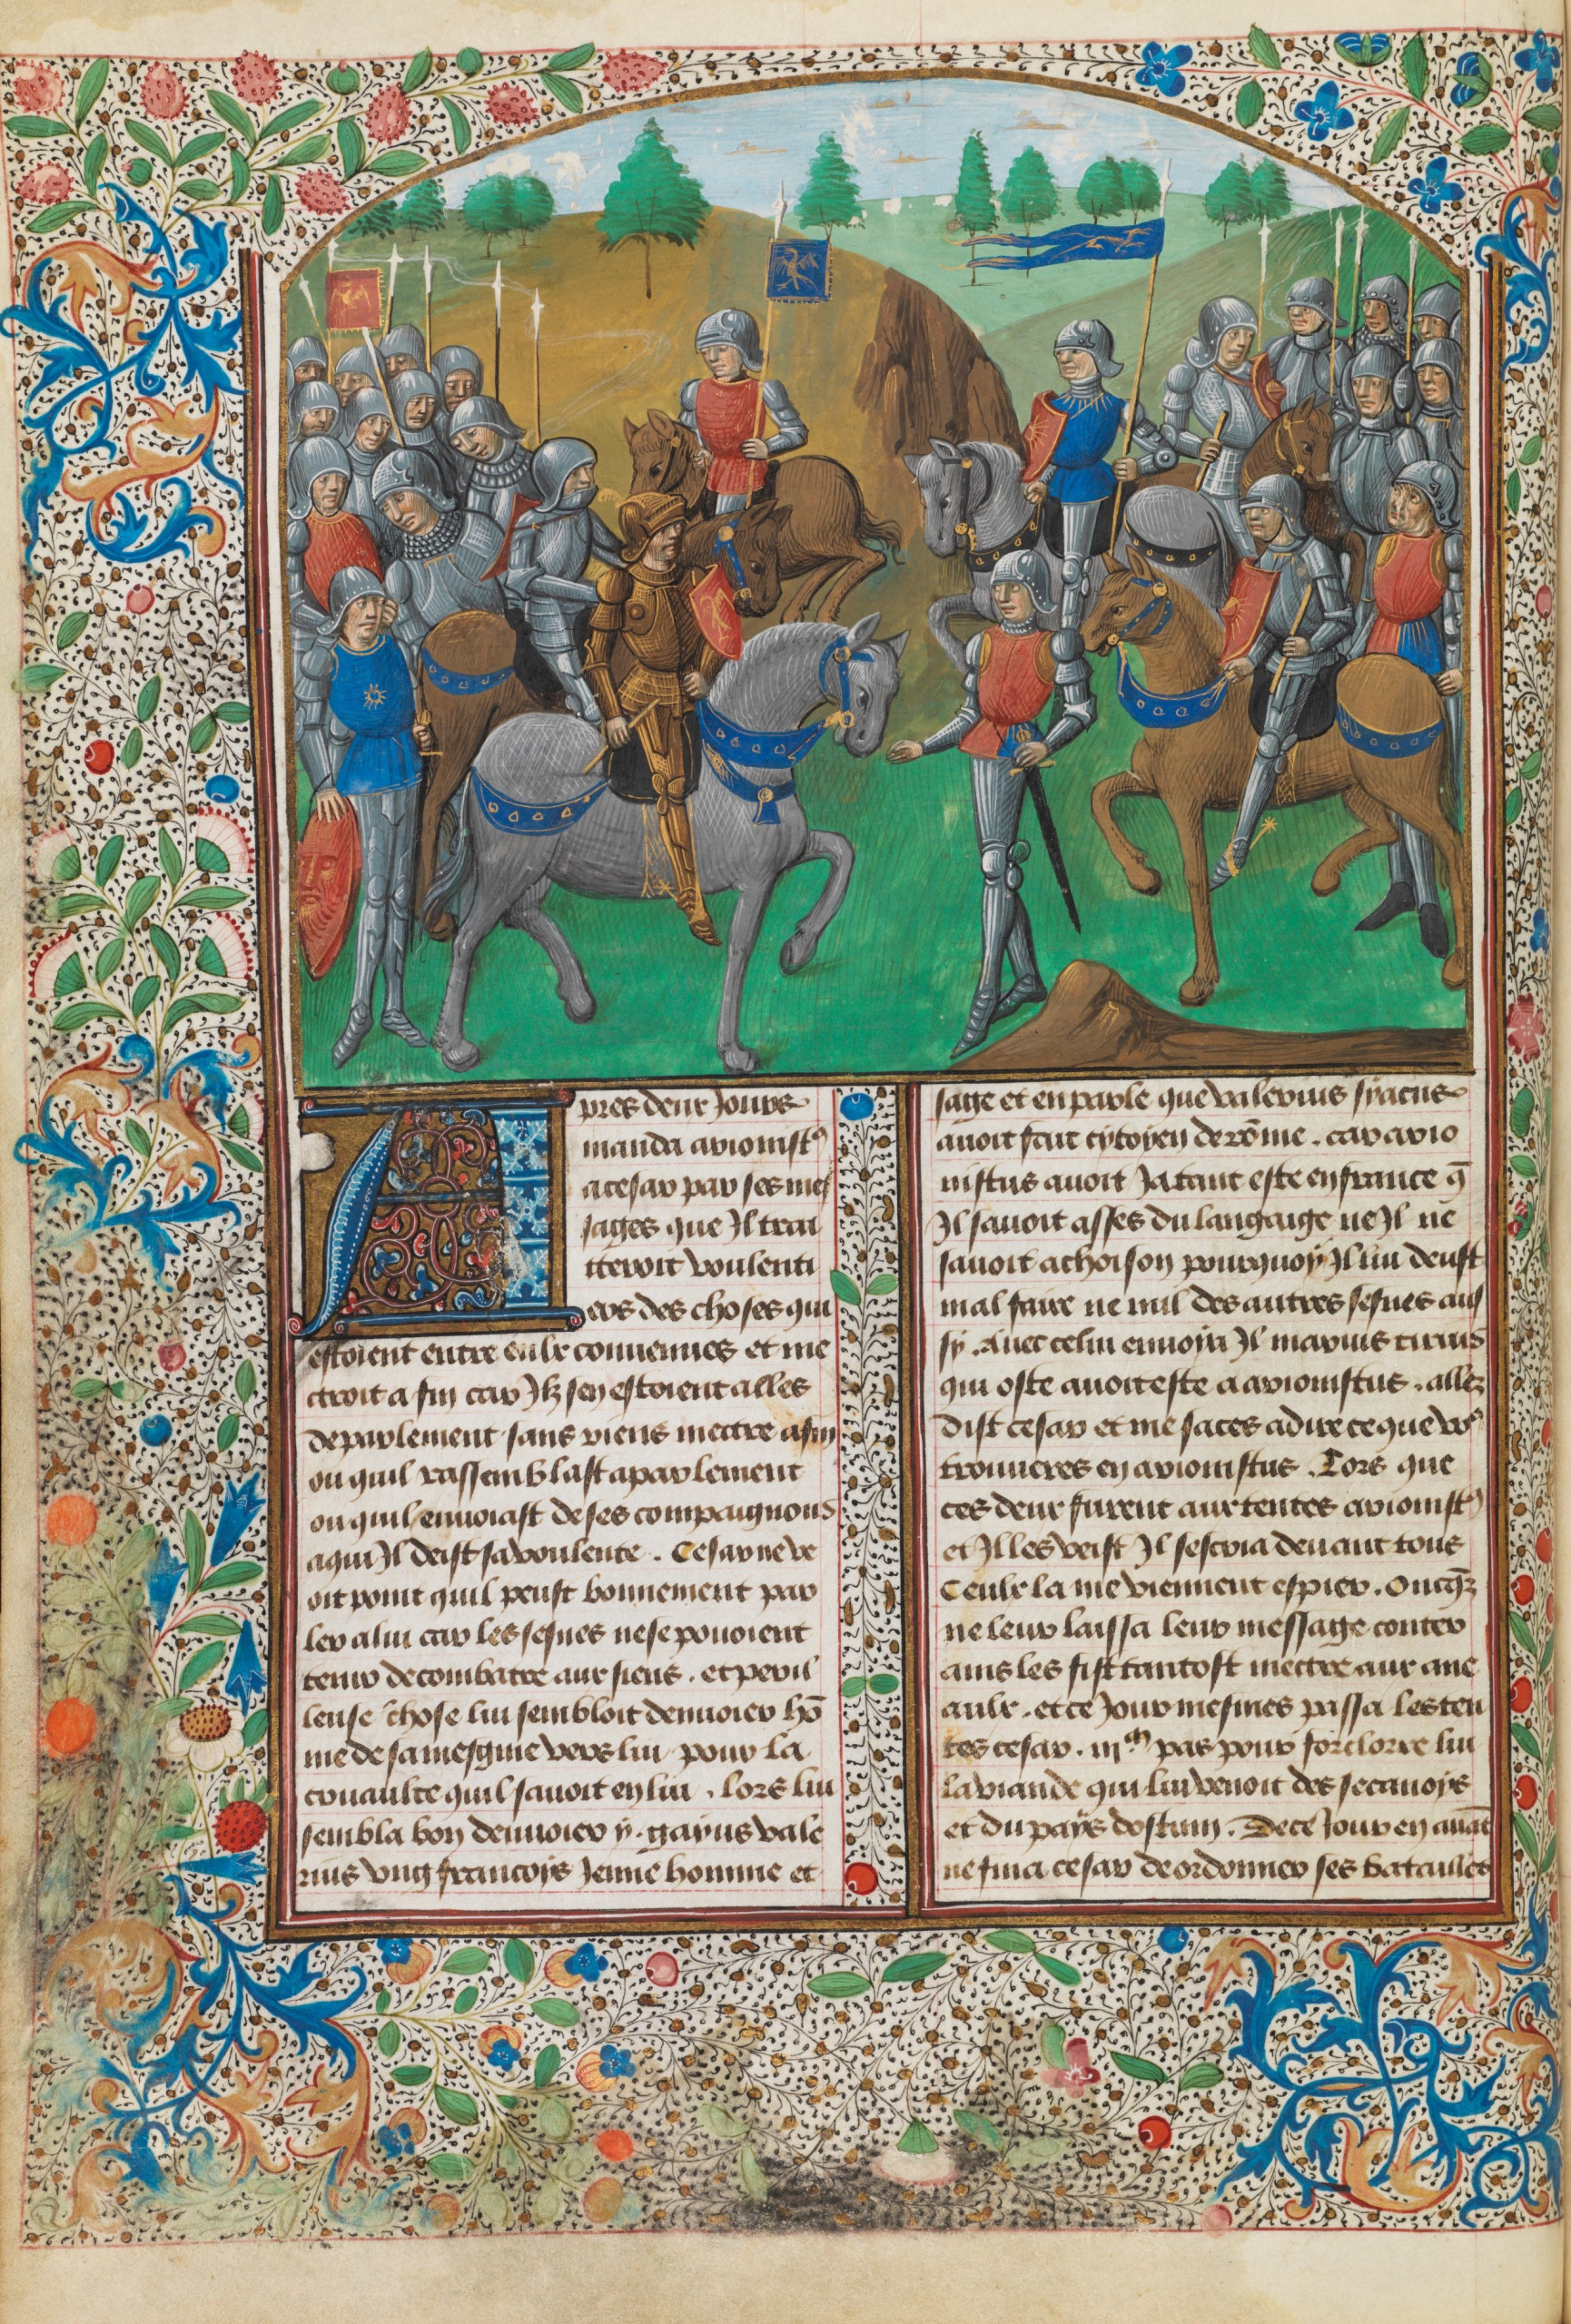 Apres deux Jours
manda arionist9
a cesar par ses mes
sages que Il trai
tteroit voulenti
ers des choses qui
estoient entre eulx conuenues et me
ctroit a fin car Ilz sen estoient alles
de parlement sans riens mectre a fin
ou quil rassemblast a parlement
ou quil enuoiast de ses compaignons
a qui Il deist sa voulente . Cesar ne ve
oit point quil peust bonnement par
ler a lui car les sesnes ne se pouoient
tenir de combatre aux siens . et peril
leuse chose lui sembloit denuoier hō
me de sa mesgnie vers lui pour la
cruaulte quil sauoit en lui . lors lui
sembla bon denuoier y . gayus vale
rius vng francois Jenne homme et
sage et en parole que valerius
auoit fait cytoyen de rōme . car ario
nistus auoit Ja tant este en france q̄
Il sauoit asses du langaige ne Il ne
sauoit achoison pourquoy Il lui deust
mal faire ne nul des autres sesnes aus
sy . Auec celui enuoya Il marius
qui oste auoit este a arionistus . allez
dist cesar et me saces a dire ce que vo9
trouueres en arionistus . Lors que
ces deux furent aux tentes arionist9
et Il les veist Il sescria deuant tous
Ceulx la me viennent espier . Oncq̄s
ne leur laissa leur message conter
ains les fist tantost mectre aux ane
aulx . et ce Jour mesmes passa les ten
tes cesar . pas pour forclorre lui
la viande qui lui venoit des secanoys
et du pays dostun . De ce Jour en auāt
ne fina cesar de ordonner ses batailles